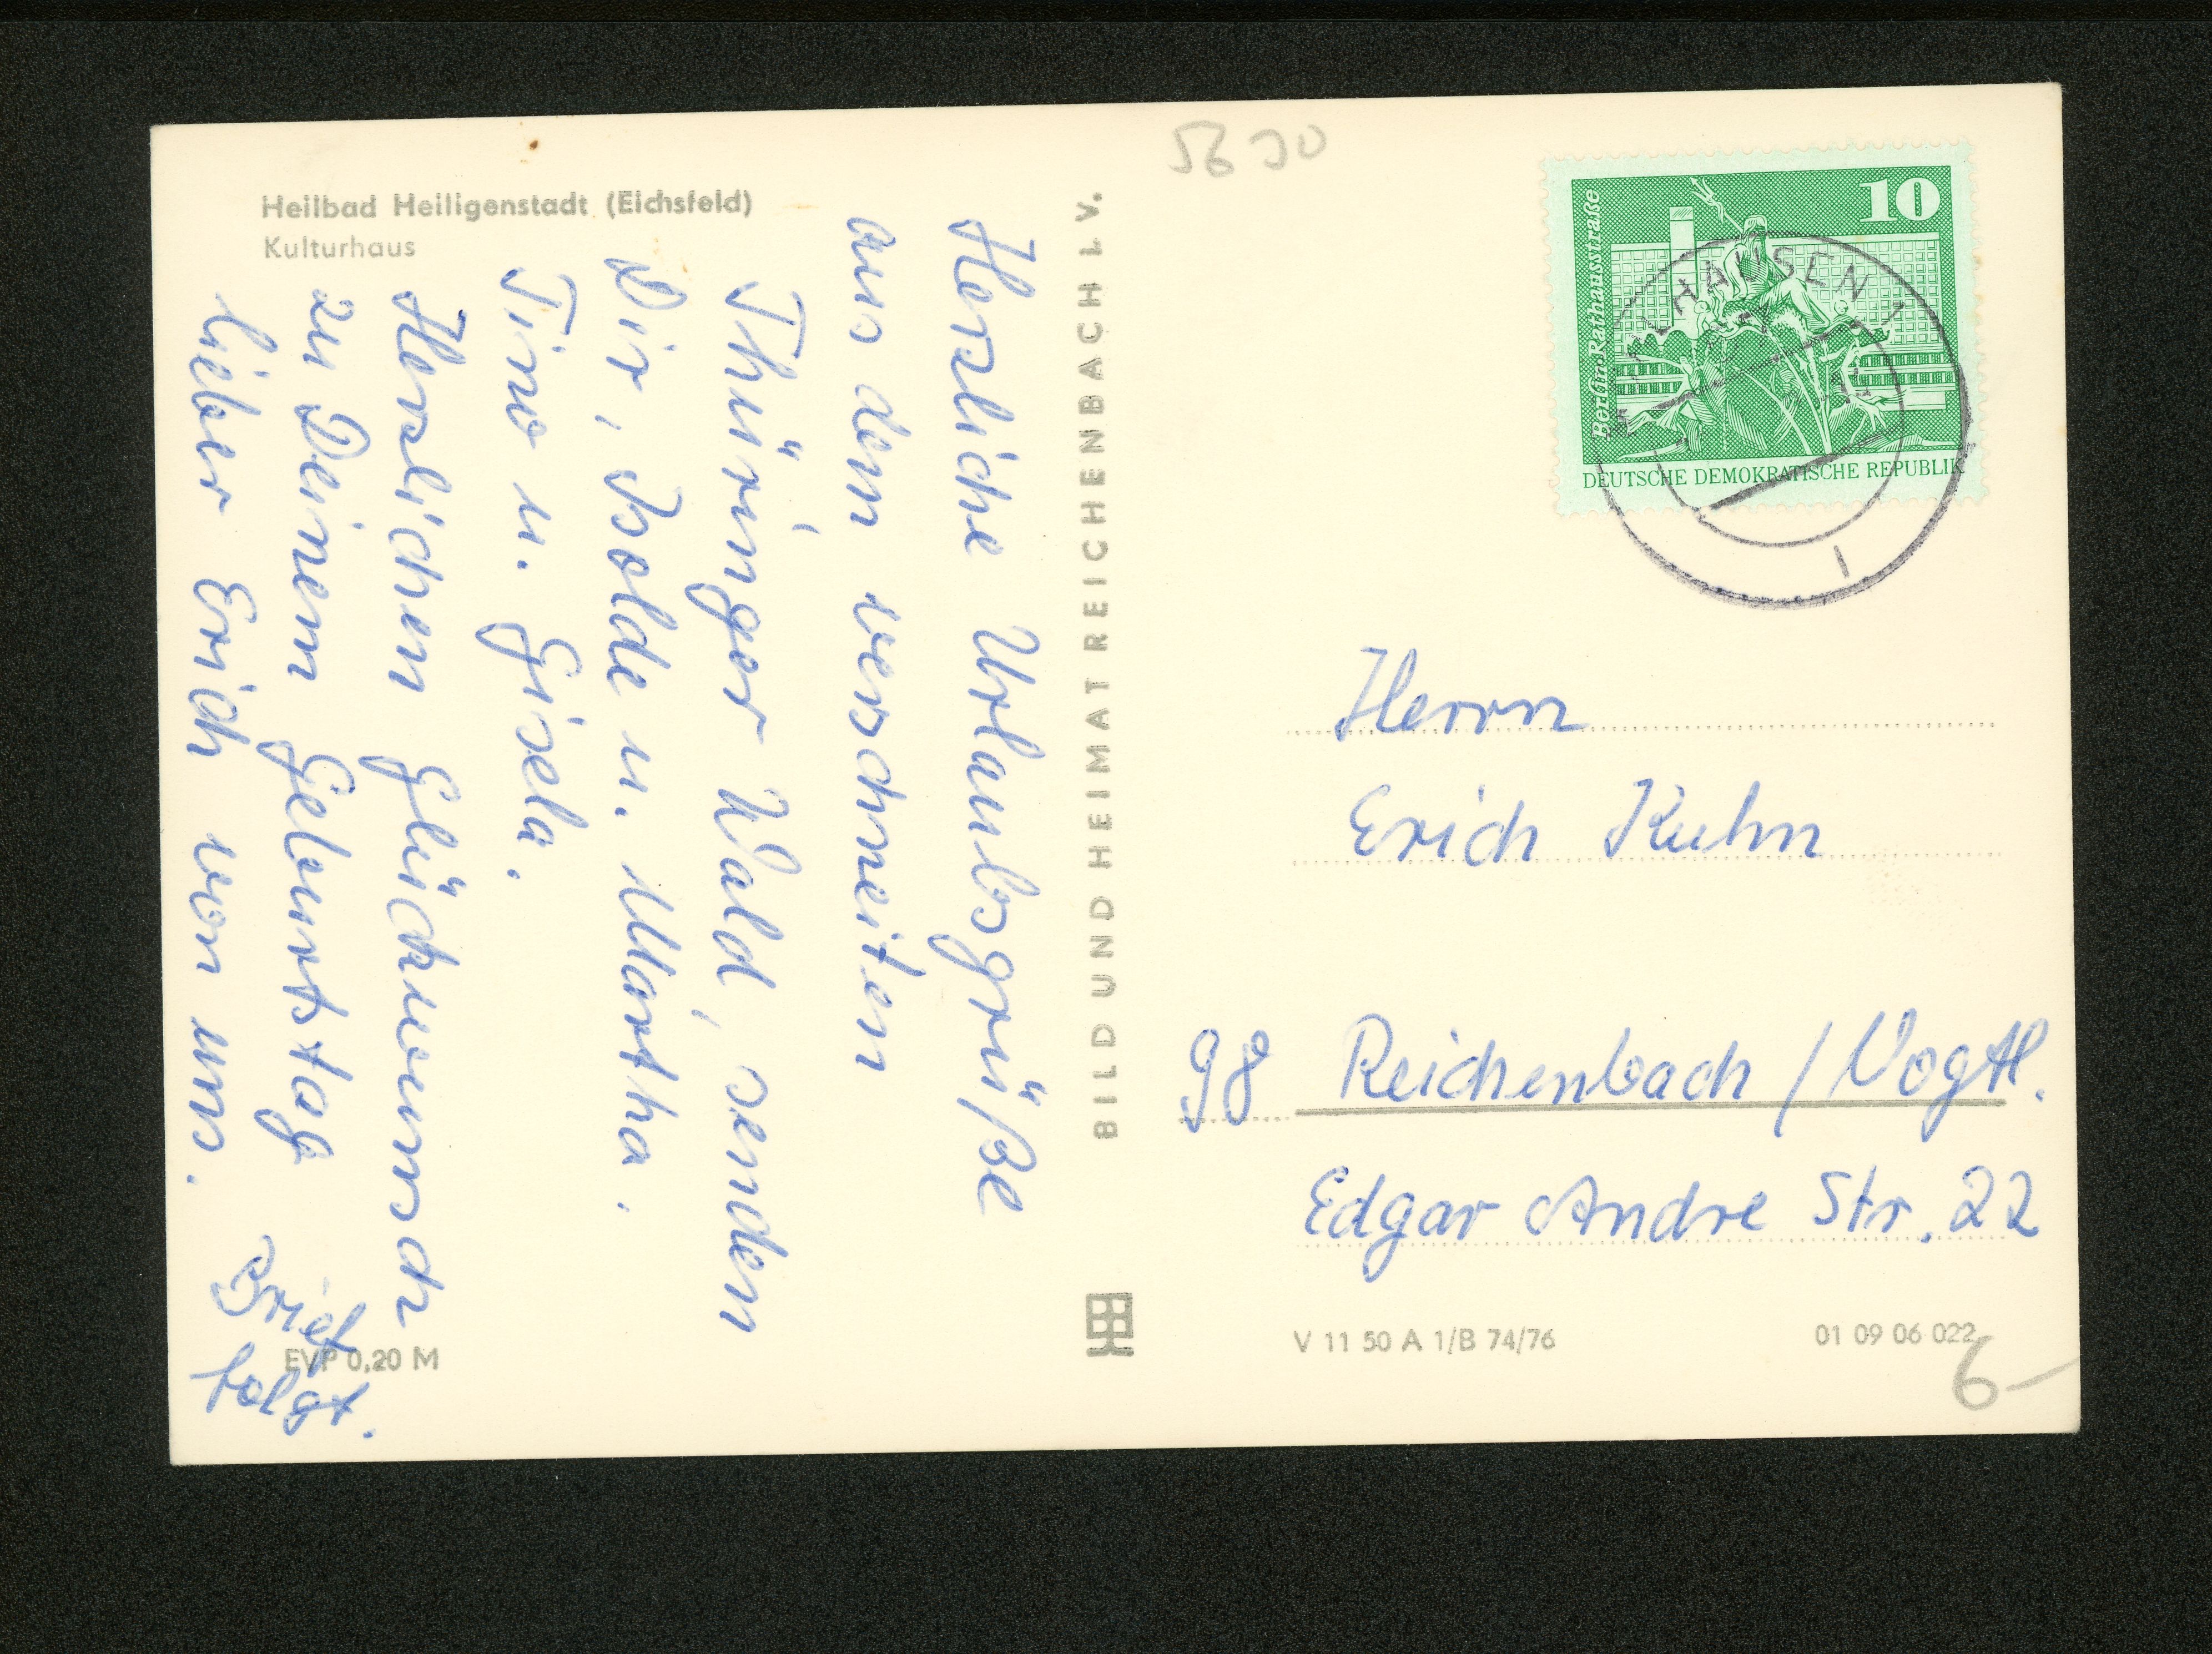 Heilbad Heiligenstadt (Eichsfeld)
Kulturhaus
Herzliche Urlaubsgrüße
aus dem verschneiten
Thüringer Wald, senden
Dir, Isolde u. Martha.
Tino u. Gisela.
Herzlichen Glückwunsch
zu Deinem Geburtstag
lieber Erich von uns.
Brief
folgt.
EVP 0,20 M
BILD UND HEIMAT REICHENBACH I. V.
5630
10
Berlin Rathausstraße
DEUTSCHE DEMOKRATISCHE REPUBLIK
HAUSEN 1
Herrn
Erich Kuhn
98 Reichenbach / Vogtl.
Edgar Andre Str. 22
V 11 50 A 1/B 74/76
01 09 06 022
6-